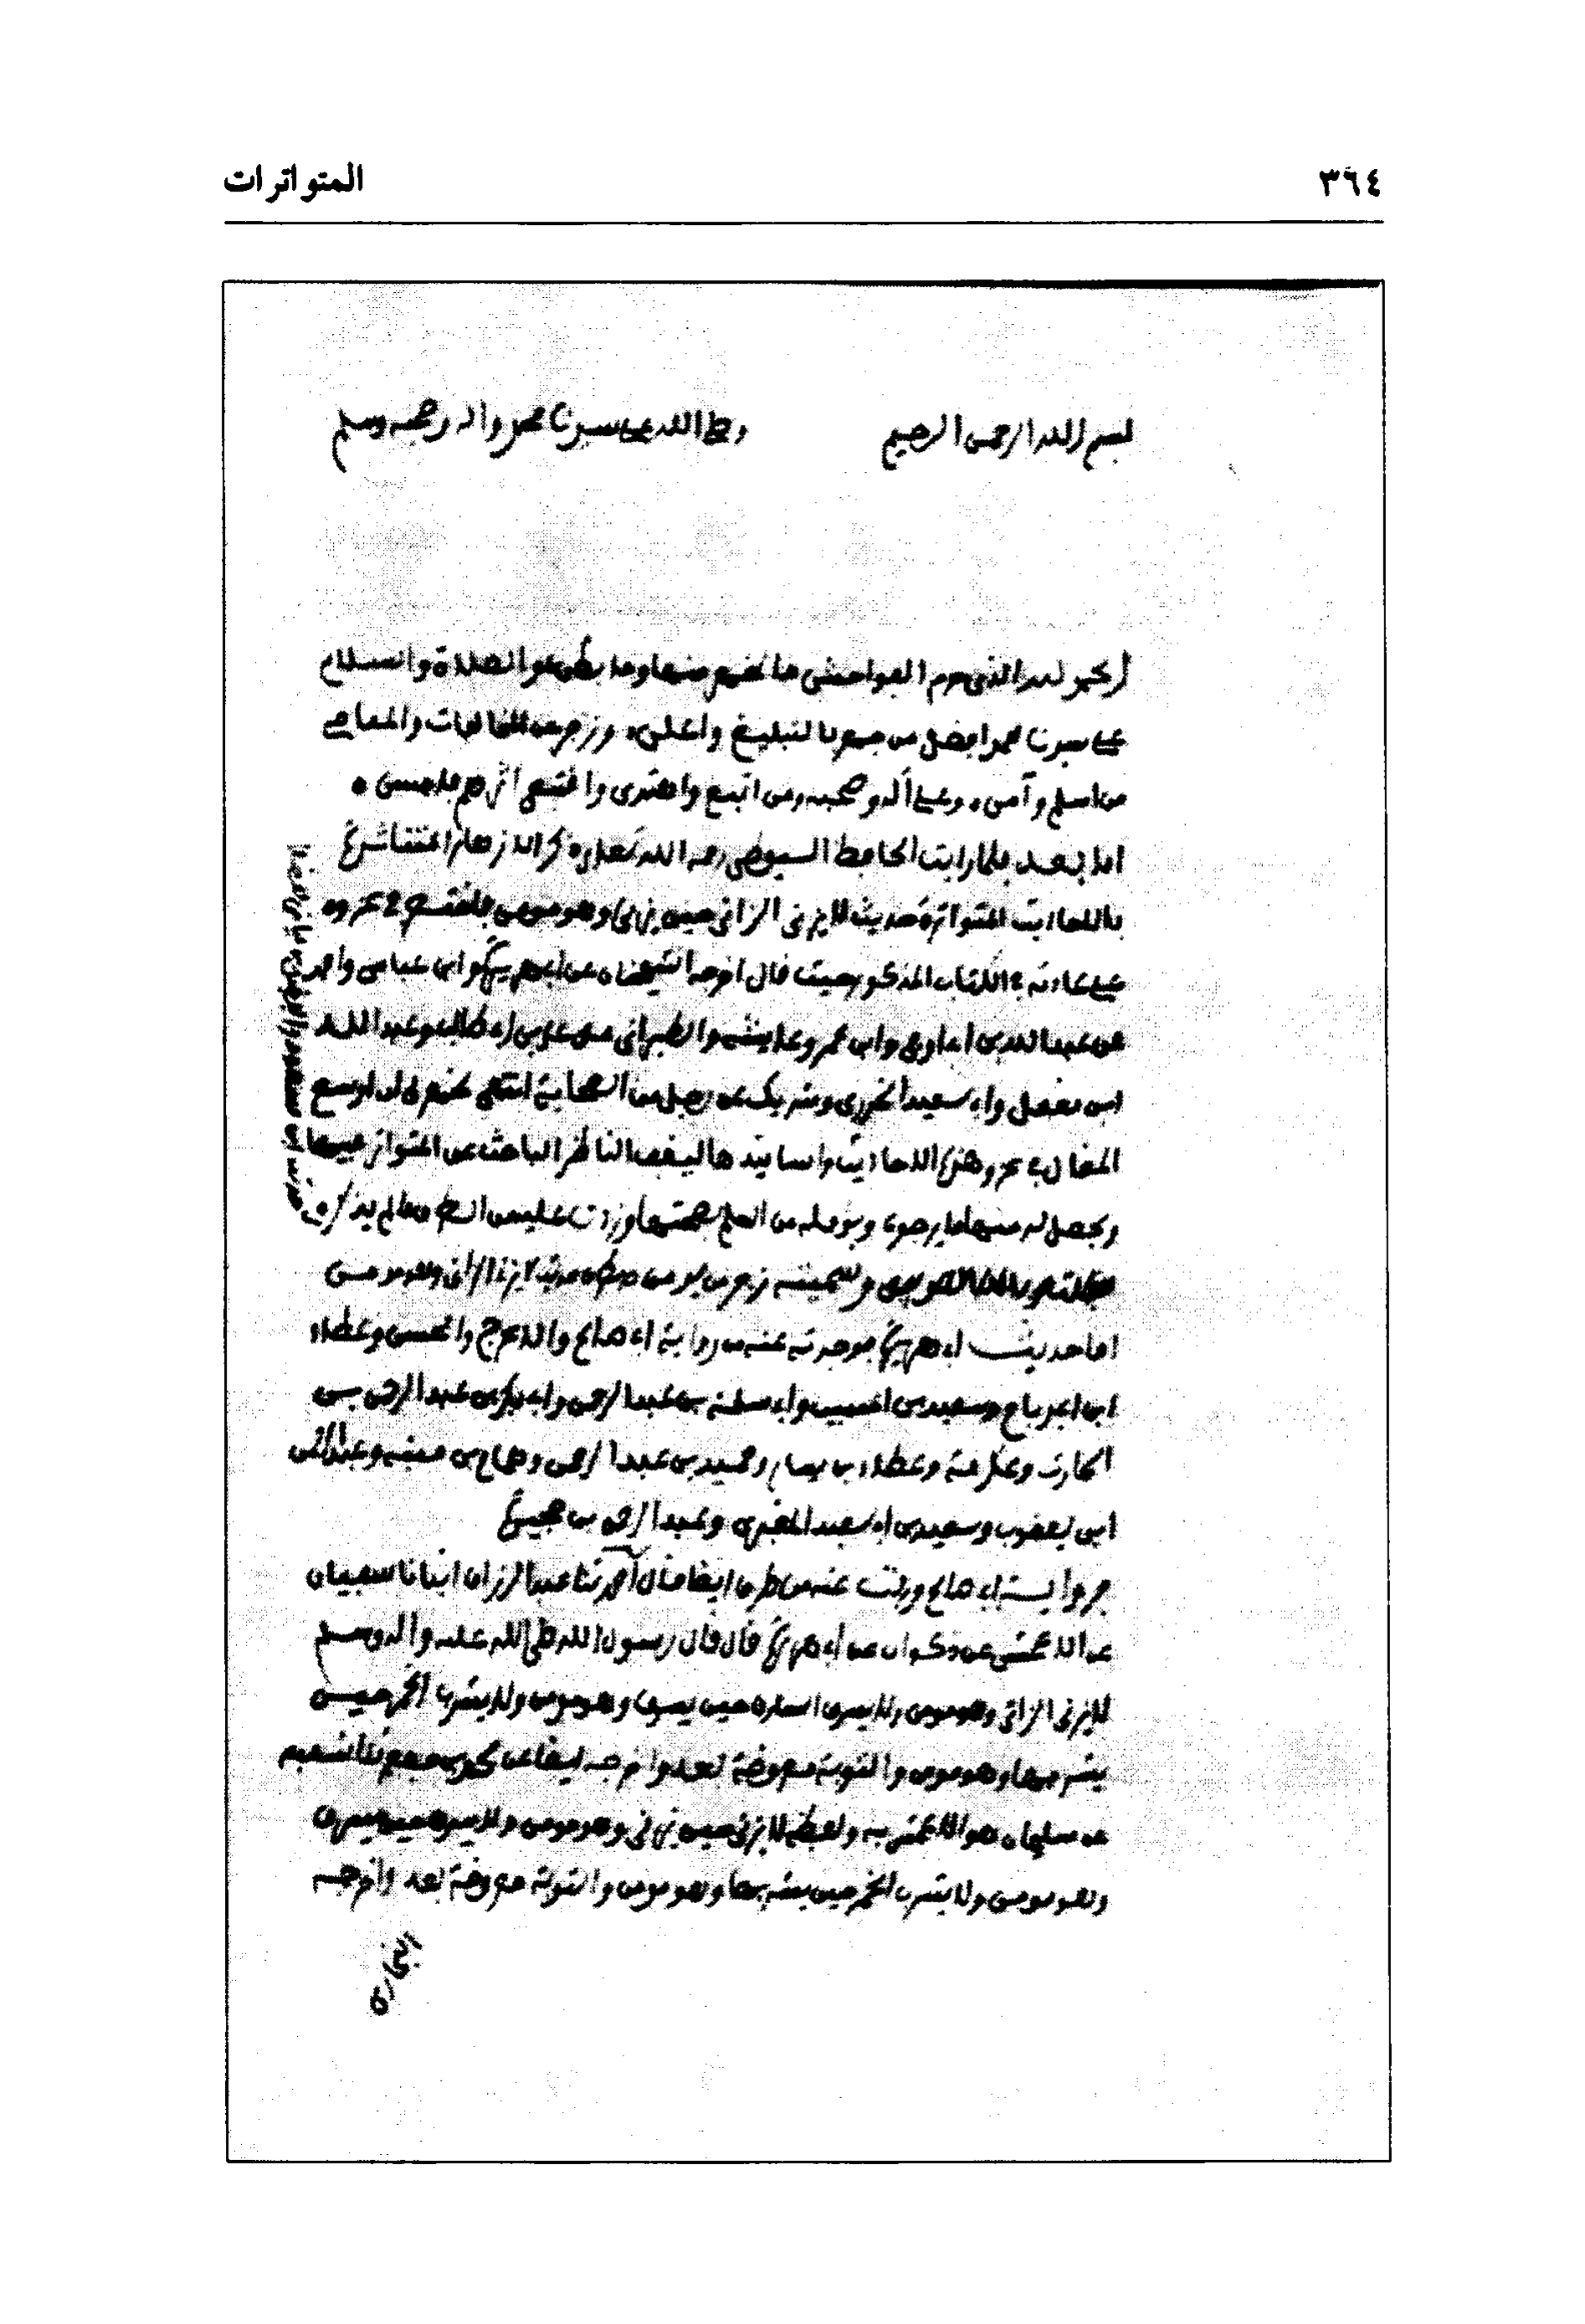 ٣٦٤
المتواترات
بسم الله الرحمن الرحيم
وصلى الله على سيدنا محمد واله وصحبه وسلم
الحمد لله الذي حرم الفواحش ما ظهر منها وما بطن والصلاة والسلام
على سيدنا محمد افضل من جهر بالتبليغ واعلن، وزجر عن المخالفات والمعاصي
من اسلم وآمن، وعلى ءاله وصحبه ومن اتبع واهتدى واقتفى اثرهم فاحسن
اما بعد فلما رايت الحافظ السيوطي رحمه الله تعلى ذكر الازهار المتناثرة
بالاحاديث المتواترة حديث لا يزني الزاني حين يزني وهو مومن فاختصر في عزوه
على عادته في الكتاب المذكور حيث قال اخرجه الشيخان عن ابي هريرة وابن عباس واحمد
عن عبد الله بن ابي اوفى وابن عمر وعايشة والطبراني عن علي بن ابي طالب وعبد الله
ابن مغفل وابي سعيد الخدري وشريك عن رجل من الصحابة انتهى ظهر لي ان اوسع
المقال في عزو هذه الاحاديث واسانيدها ليقف الناظر الباحث عن المتواتر عليها
ويحصل له منها ما يرجوه ويؤمله من العلم بصحتها وزدت عليه من الطرق ما لم يذكره
وسميته زجر من يومن بطرق حديث لا يزني الزاني وهو مومن
اما حديث ابي هريرة فوجدته عنه من رواية ابي صالح والاعرج والحسن وعطاء
ابن ابي رباح وسعيد بن المسيب وابي سلمة بن عبد الرحمن وابي بكر بن عبد الرحمن بن
الحارث وعكرمة وعطاء بن يسار وحميد بن عبد الرحمن وهمام بن منبه وعبد الرحمن
ابن يعقوب وسعيد بن ابي سعيد المقبري وعبد الرحمن بن حجيرة
فرواية ابي صالح وردت عنه من طرق ايضا قال احمد ثنا عبد الرزاق انبانا سفيان
عن الاعمش عن ذكوان عن ابي هريرة قال قال رسول الله صلى الله عليه واله وسلم
لا يزني الزاني وهو مومن ولا يسرق السارق حين يسرق وهو مومن ولا يشرب الخمر حين
يشربها وهو مومن والتوبة معروضة بعد واخرجه ايضا عن محمد بن جعفر ثنا شعبة
عن سليمان هو الاعمش به ولفظه لا يزني حين يزني وهو مومن ولا يسرق حين يسرق
وهو مومن ولا يشرب الخمر حين يشربها وهو مومن والتوبة معروضة بعد واخرجه
البخاري